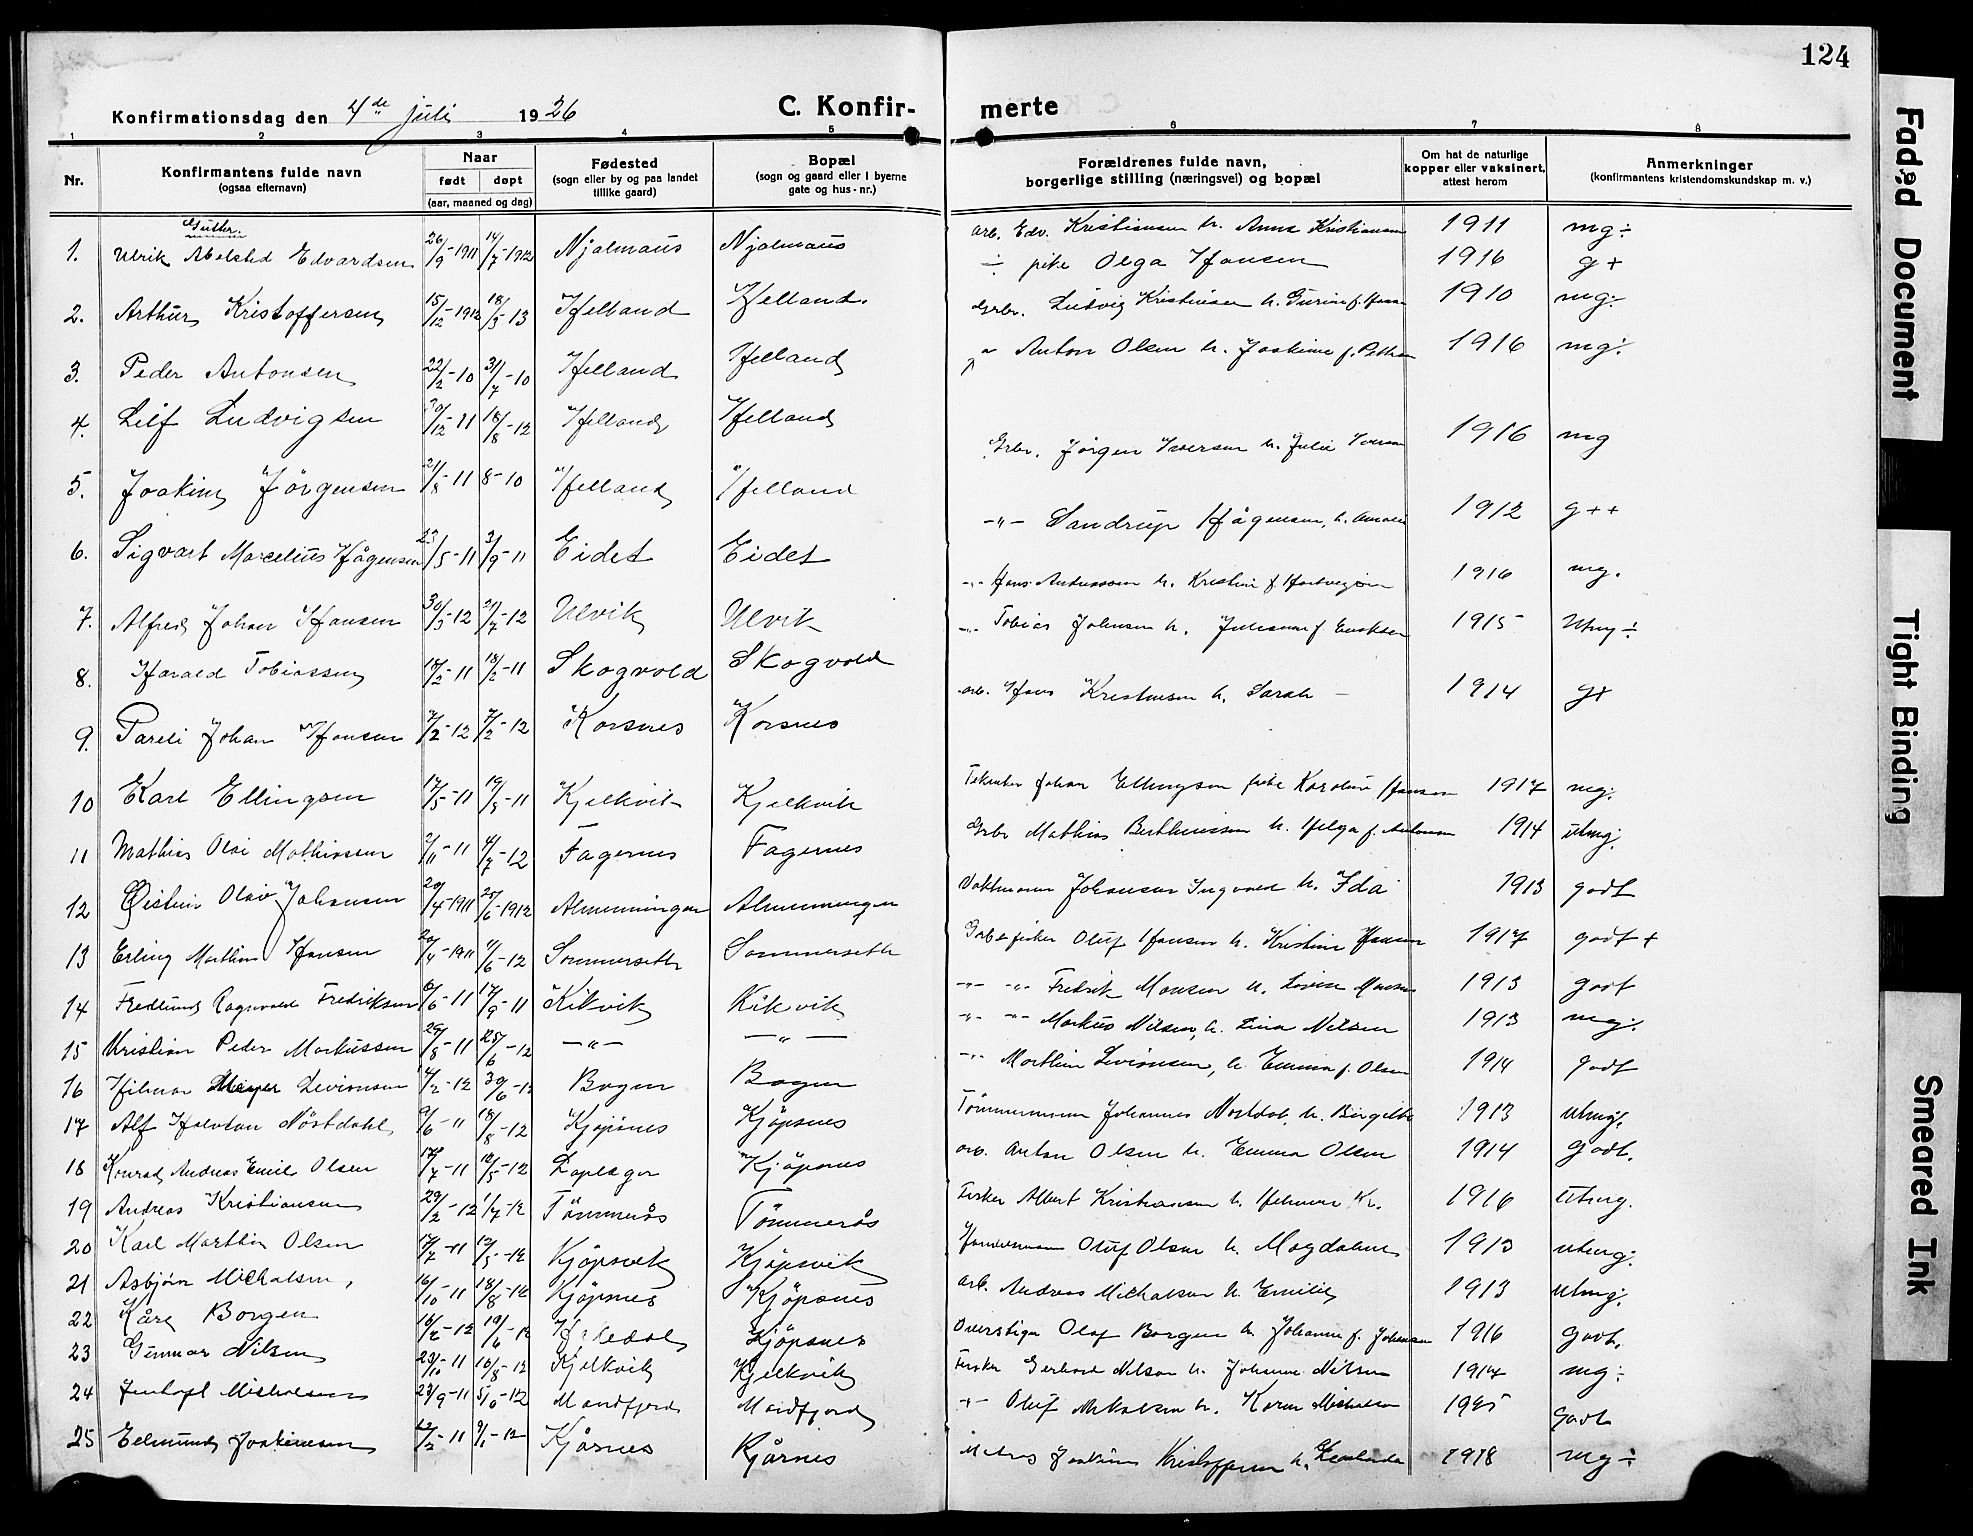 124
Konfirmationsdag den 4de juli 1926
C. Konfir-
merte
1 2 3 4 5 6 7 8
Nr.
Konfirmantens fulde navn
(ogsaa efternavn)
Naar
født døpt
(aar, maaned og dag)
Fødested
(sogn eller by og paa landet
tillike gaard)
Bopæl
(sogn og gaard eller i byerne
gate og hus-nr.)
Forældrenes fulde navn,
borgerlige stilling (næringsvei) og bopæl
Om hat de naturlige
kopper eller vaksinert,
attest herom
Anmerkninger
(konfirmantens kristendomskundskap m. v.)
Gutter.
1. Ulrik Edvardsen 26/9-1911 14/7-1912
2. Arthur Kristoffersen 15/12-1912 18/3-13 Helland Helland.
3. Peder Antonsen 22/2-10 31/7-10 Helland Helland
4. Leif Ludvigsen 30/12-11 18/8-12 Helland Helland
5. Joakim Jörgensen 21/8-11 8-10 Helland Helland
6. Sigvart Marcelius Hågensen 23/5-11 3/9-11 Eidet Eidet
7. Alfred Johan Hansen 30/3-12 21/7-12 Ulvik Ulvik
8. Harald Tobiassen 18/2-11 Skogvold Skogvold
9. Pareli Johan Hansen 7/2-12 7/2-12 Korsnes Korsnes
10 Karl Ellingsen 17/5-11 19/8-11 Kjelkvik Kjelkvik
11 Mathias Olai Mathissen 2/11-11 4/7-12 Fagernes Fagernes
12 Øistein Olav Johansen 29/4-1911 25/6-1912 Almenningen Almenningen
13 Erling Marthin Hansen 20/4-1911 9/6-12 Sommerseth Sommerseth
14 Fredlund Ragnvald Fredriksen 6/6-11 17/9-11 Kilkvik Kilkvik
15 Kristian Peder Markussen 29/8-11 25/6-12 -"- -"-
16 Hilmar Meyer Levionsen 4/2-12 30/6-12 Bogen Bogen
17 Alf Halvdan Nöstdahl 9/6-11 18/8-12 Kjöpsnes Kjöpsnes
18 Konrad Andreas Emil Olsen 17/7-11 12/5-12 Kjöpsnes
19 Andreas Kristiansen 29/2-12 1/7-12 Tömmerås Tömmerås
20 Karl Marthin Olsen 17/7-11 12/5-12 Kjöpsvik Kjöpsvik
21 Asbjörn Michalsen, 16/10-11 18/8-12 Kjöpsnes Kjöpsnes
22 Kåre Borgen 16/2-12 19/6-12 Kjöpsnes
23 Gunnar Nilsen 23/10-11 16/8-12 Kjelkvik Kjelkvik
24 Michalsen 23/9-11 Mandfjord Mandfjord
25 Edmund Joakimsen 12/2-11 9/1-12 Kjårnes Kjårnes
arb. Edv. Kristiansen h. Anna Kristiansen 1911 mg÷
÷ pike Olga Hansen 1916 g+
Grbr. Ludvig Kristensen h. 1910 mg÷
Anton Olsen h. Joakime f. 1916 mg÷
Grbr. Jörgen Iversen h. Julie Iversen 1916 mg
-"- Sandrup Hågensen, h. Amalie 1912 g++
-"- Hans Andreassen h. Kristine f. Hartvigsen 1916 mg.
-"- Tobias Johnsen h. f. 1915 Utmg÷
arb. Hans Kristensen h. Sarah - 1914 g+
Johan Ellingsen pike Karoline Hansen 1917 mg÷
Grbr Mathias Bertheussen h. Helga f. 1914 utmg.
Vaktmann Johansen Ingvald h. Ida 1913 godt
Oluf Hansen h. Kristine Hansen 1917 godt+
-"- -"- Fredrik Monsen h. Lovise Monsen 1913 godt
-"- -"- Markus Nilsen, h. Lina Nilsen 1913 mg÷
-"- Marthin Levionsen, h. Emma f. Olsen 1914 godt
Tömmermann Johannes Nöstdal, h. 1913 utmg.
arb. Anton Olsen h. Emma Olsen 1914 godt.
Fisker Albert Kristiansen h. Kr. 1916 Utmg.
Oluf Olsen h. Magdalene 1913 utmg÷
arb. Andreas Michalsen h. Emilie 1913 utmg.
Olaf Borgen h. Johanne f. Johansen 1916 godt.
Fisker Gerhard Nilsen h. Johanne Nilsen 1914 mg÷
-"- Oluf Mikalsen h. Karen Michalsen godt
Joakim Kristoffersen h. 1918 mg÷
Faded Document
Tight Binding
Smeared Ink